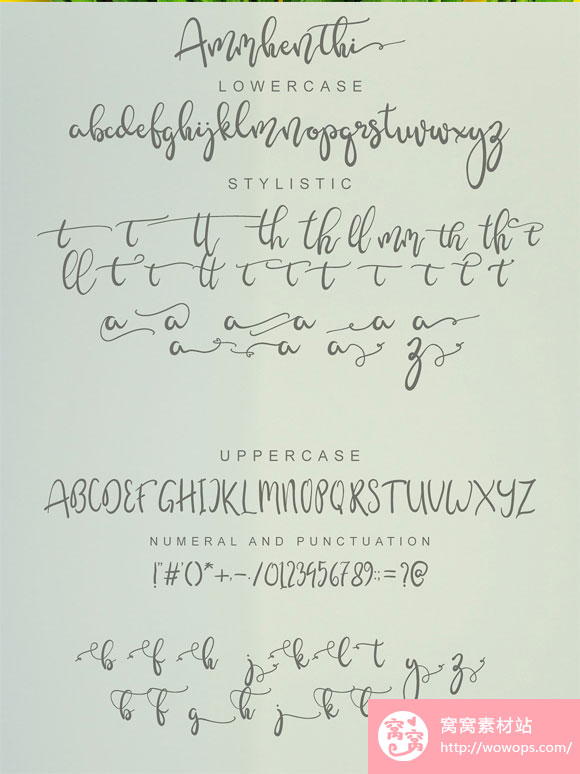 Ammhenthi
LOWERCASE
abcdefghijklmnopqrstuvwxyz
STYLISTIC
t t tt th th ll mm th th t
ll t t tt t t t t t t t
a a a a a a
a a a z
UPPERCASE
ABCDEFGHIJKLMNOPQRSTUVWXYZ
NUMERAL AND PUNCTUATION
!"#'()*+,-./0123456789:;=?@
b f h j k l t y z
b f g h j k t
窝窝
窝窝素材站
http://wowops.com